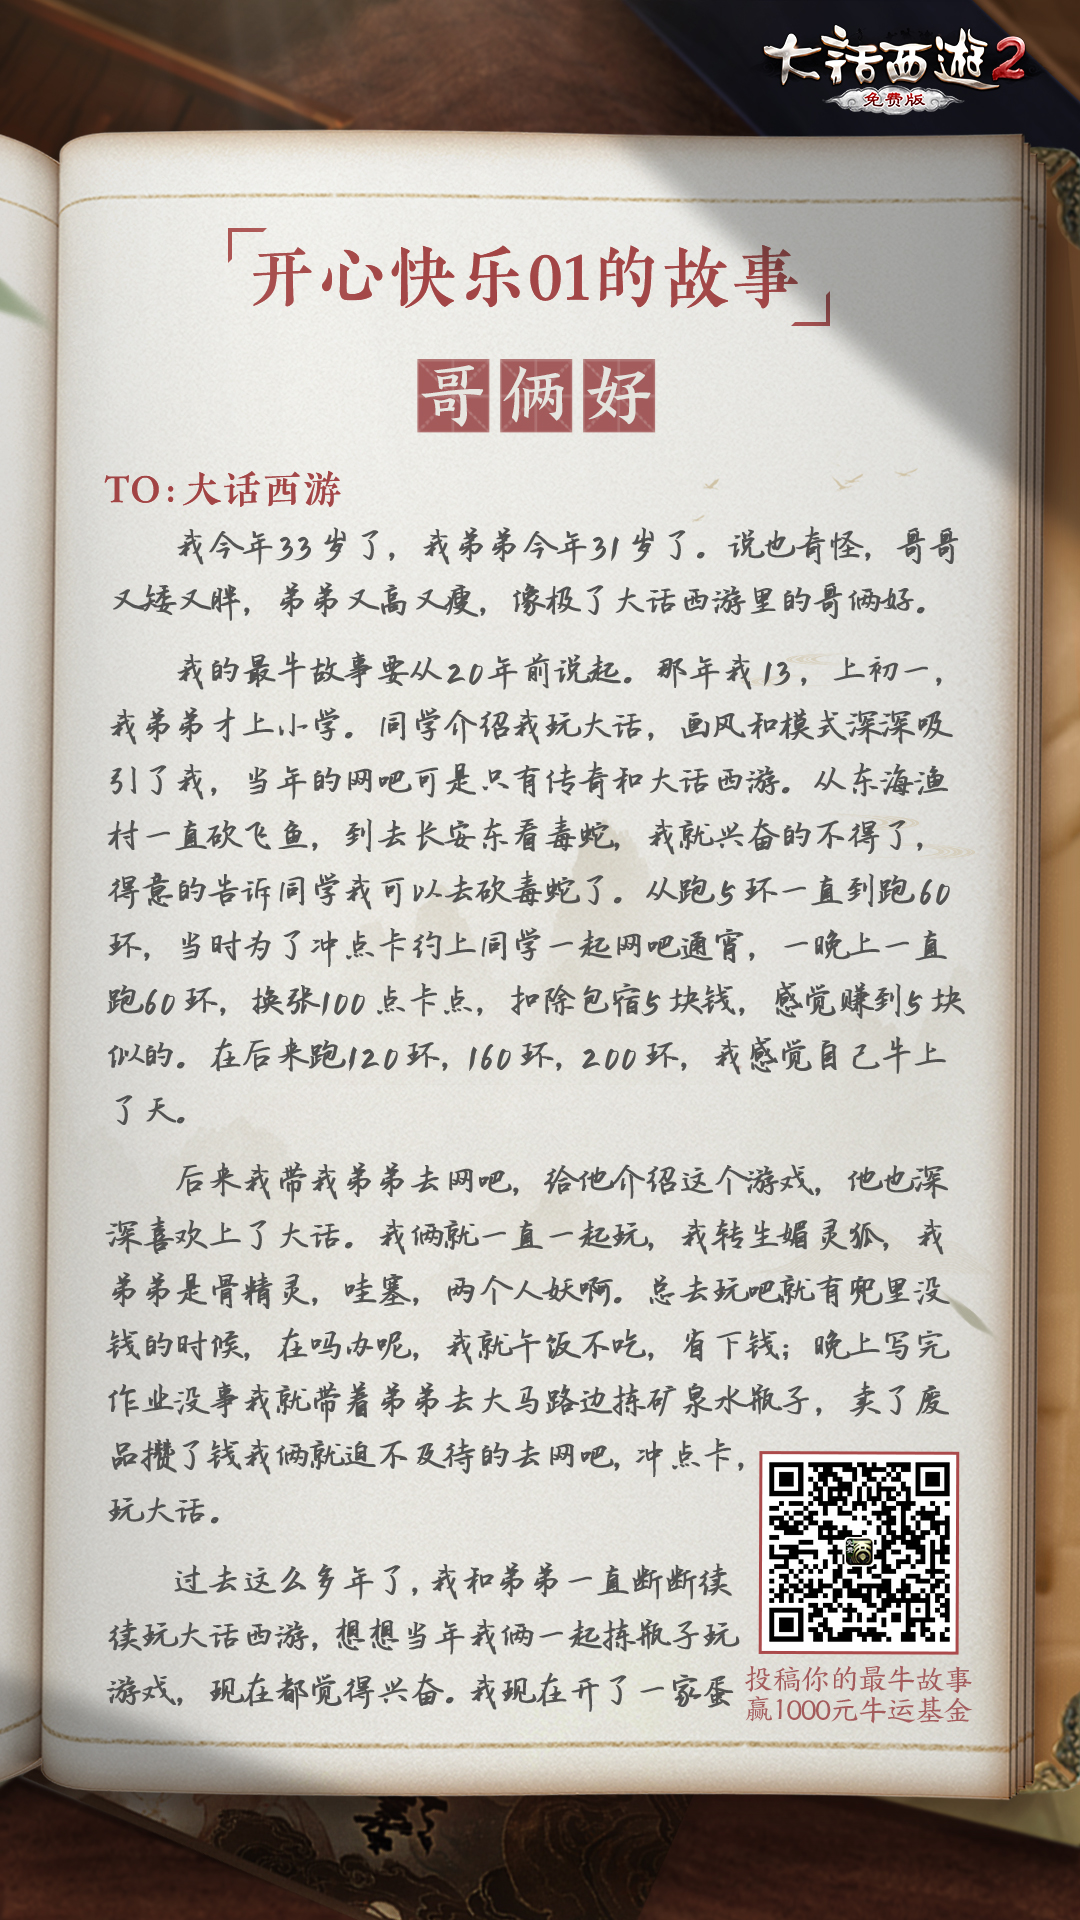 大话西遊2
免费版
「开心快乐01的故事」
哥俩好
TO:大话西游
我今年33岁了，我弟弟今年31岁了。说也奇怪，哥哥
又矮又胖，弟弟又高又瘦，像极了大话西游里的哥俩好。
我的最牛故事要从20年前说起。那年我13，上初一，
我弟弟才上小学。同学介绍我玩大话，画风和模式深深吸
引了我，当年的网吧可是只有传奇和大话西游。从东海渔
村一直砍飞鱼，到去长安东看毒蛇，我就兴奋的不得了，
得意的告诉同学我可以去砍毒蛇了。从跑5环一直到跑60
环，当时为了冲点卡约上同学一起网吧通宵，一晚上一直
跑60环，换张100点卡点，扣除包宿5块钱，感觉赚到5块
似的。在后来跑120环，160环，200环，我感觉自己牛上
了天。
后来我带我弟弟去网吧，给他介绍这个游戏，他也深
深喜欢上了大话。我俩就一直一起玩，我转生媚灵狐，我
弟弟是骨精灵，哇塞，两个人妖啊。总去玩吧就有兜里没
钱的时候，在吗办呢，我就午饭不吃，省下钱；晚上写完
作业没事我就带着弟弟去大马路边拣矿泉水瓶子，卖了废
品攒了钱我俩就迫不及待的去网吧，冲点卡，
玩大话。
过去这么多年了，我和弟弟一直断断续
续玩大话西游，想想当年我俩一起拣瓶子玩
游戏，现在都觉得兴奋。我现在开了一家蛋
投稿你的最牛故事
赢1000元牛运基金